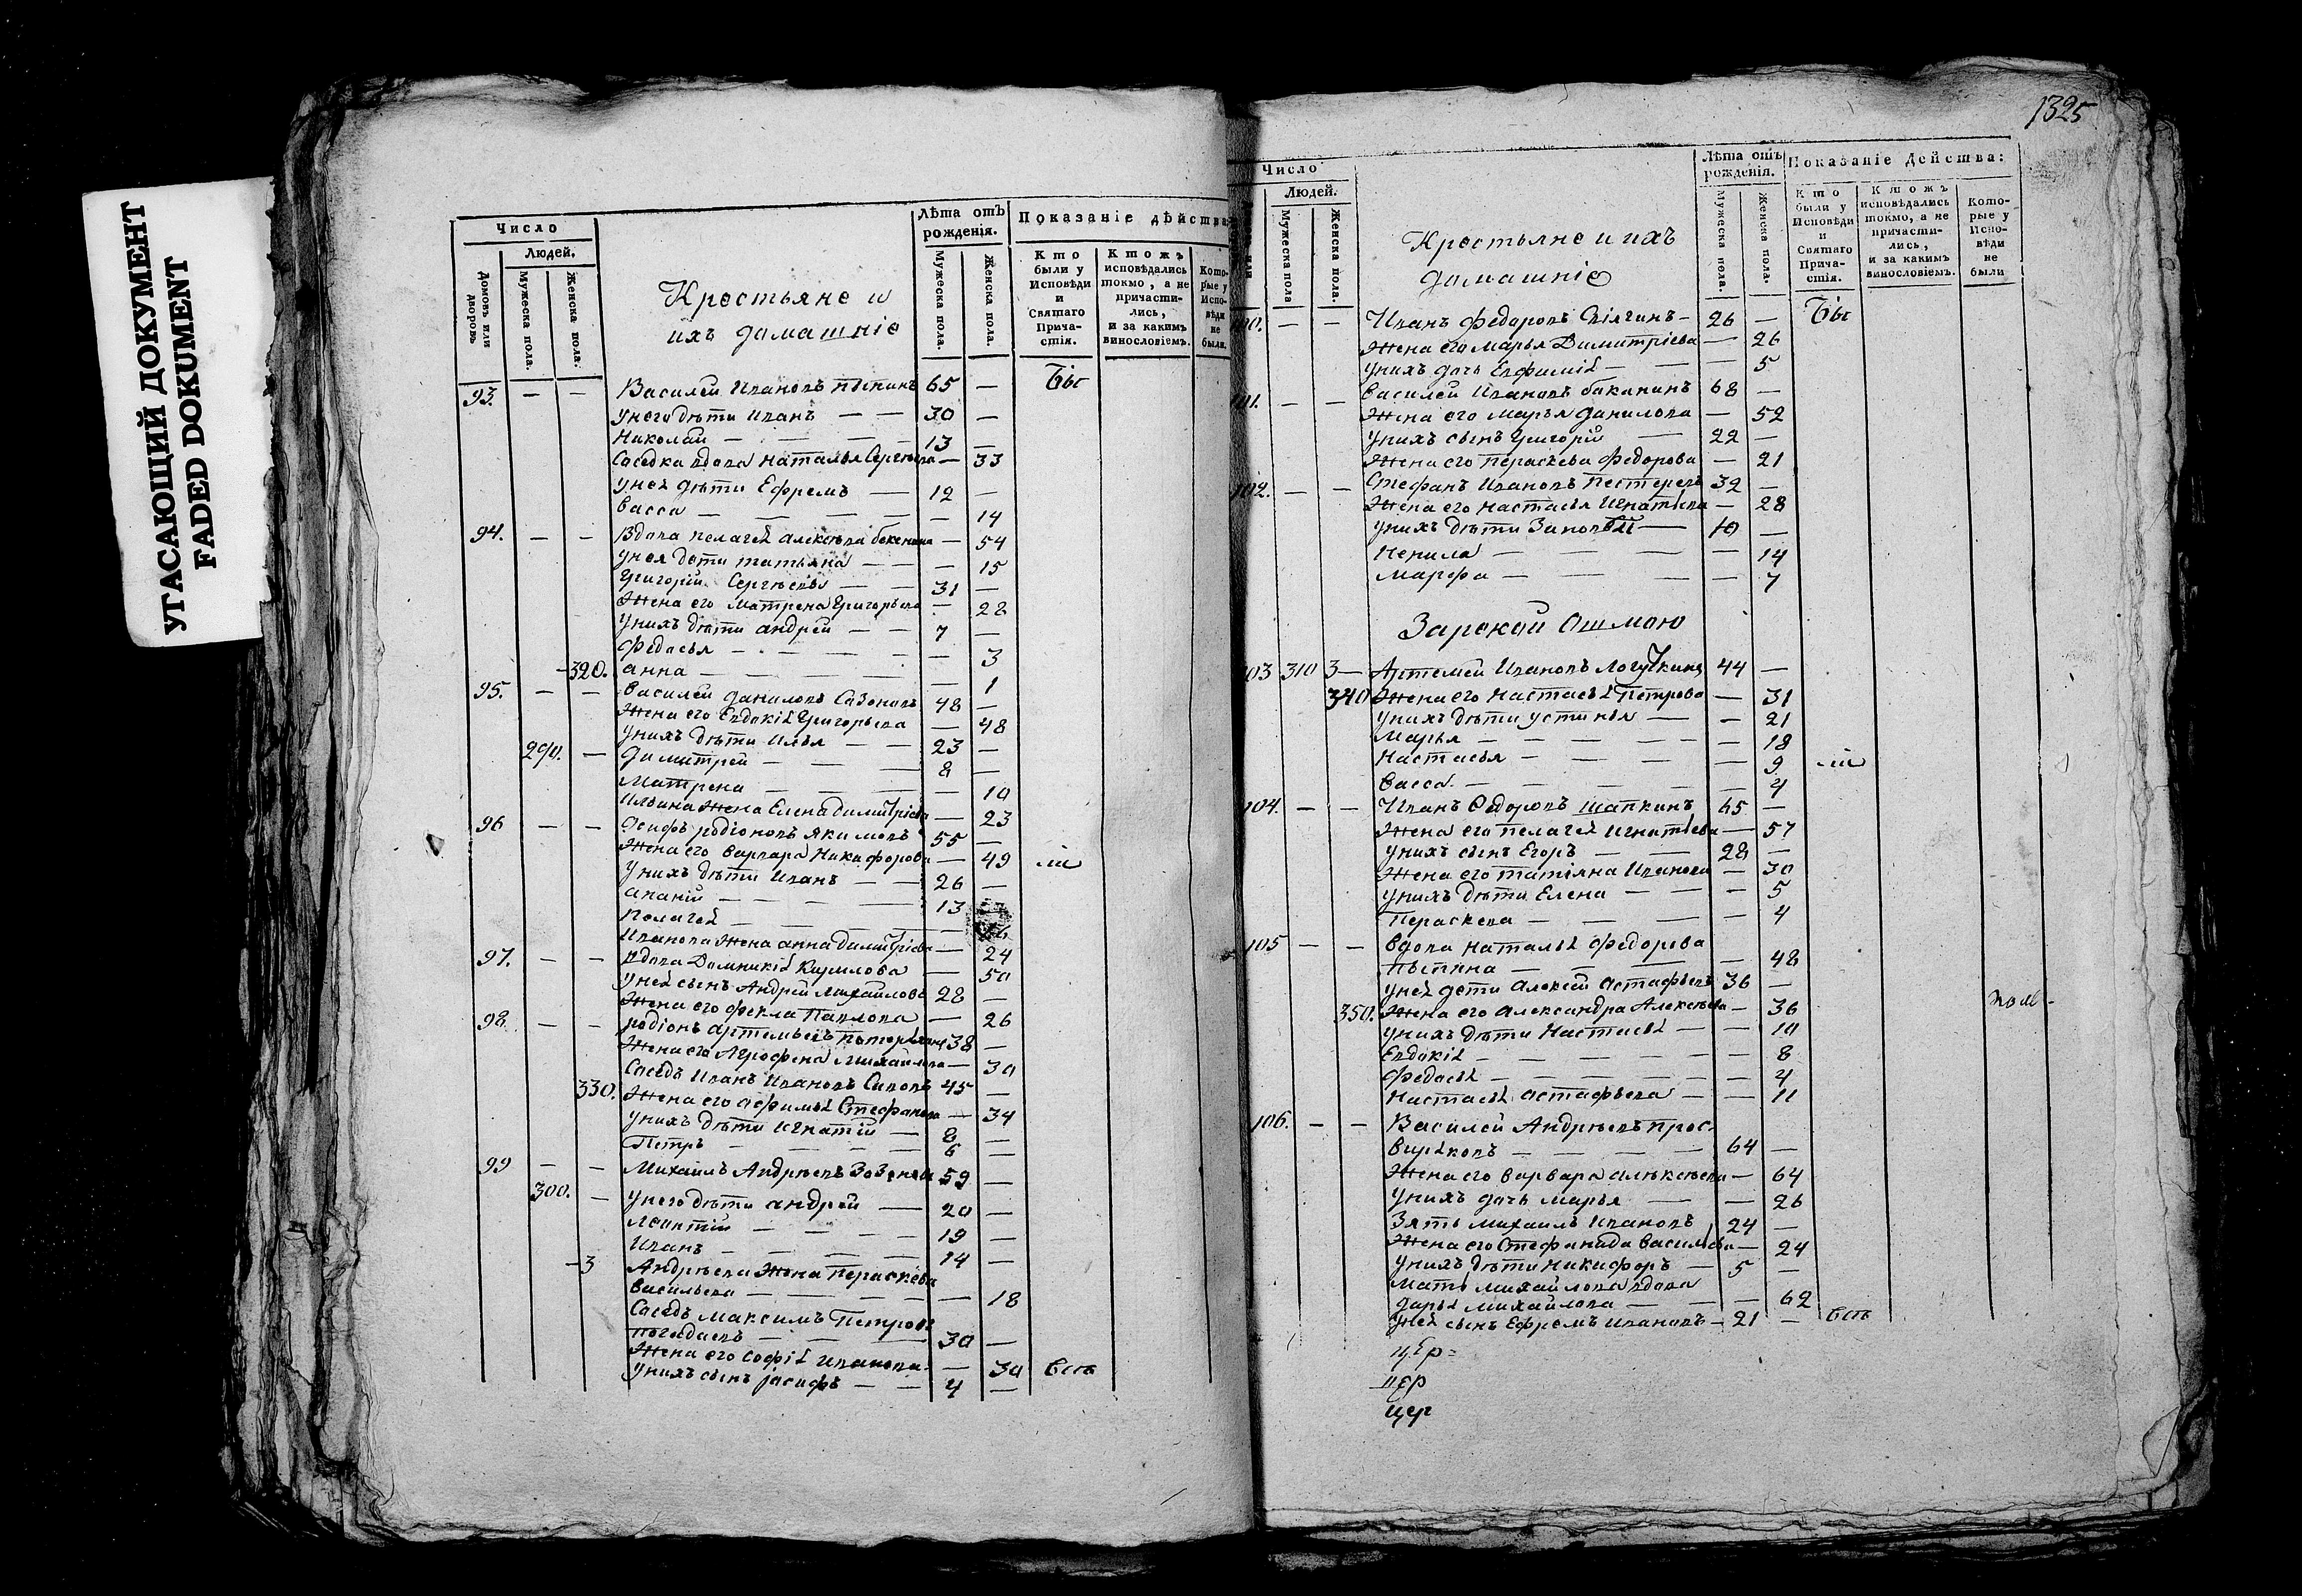 УГАСАЮЩИЙ ДОКУМЕНТ
FADED DOKUMENT
Число
Людей.
Домовъ или дворовъ
Мужеска пола.
Женска пола.
Крестьяне и
ихъ домашнiе
Лѣта отъ рожденiя.
Мужеска пола.
Женска пола.
Показанiе дѣйства
Кто были у Исповѣди и Святаго Прича-стiя.
Ктожъ исповѣдались токмо, а не причасти-лись, и за какимъ винословiемъ.
Кото-рые у Испо-вѣди не были.
93. — — Василей Ивановъ 65 — Бы
у него дѣти Иванъ — — 30 —
Николай — — — 13 —
Соседка вдова Наталья Сергѣева — 33
у неѣ дѣти Ефремъ — 12 —
Васса — — — — 14
94. — — Вдова Пелагеѣ Алексѣева — 54
у нея дети татьяна — — — 15
Григорiй Сергѣевъ — — 31 —
Жена его Матрена Григорьева — 28
у нихъ дѣти андрей — — 7 —
Федосья — — — — 3
320. анна — — — — 1
95. — — Василей Даниловъ Сазоновъ 48 —
Жена его Евдокiѣ Григорьева — 48
у нихъ дѣти Илья — — 23 —
290. — Димитрей — — 8 —
Матрена — — — 10
Ильина жена Елена Димитрiева — 23
96 — — Осифъ родiоновъ Якимовъ 55 —
Жена его Варвара Никифорова — 49 ли
у нихъ дѣти Иванъ — — 26 —
ананiй — — — 13
Пелагеѣ — — — —
Иванова жена анна Димитрiева — 24
97. — — вдова Домникiѣ Кирилова — 50
у неѣ сынъ Андрей Михайловъ 28 —
Жена его фекла Павлова — 26
98. — — родiонъ артемьевъ 38 —
Жена его Агрофена Михайлова — 30
Соседъ Иванъ Ивановъ Савовъ 45 —
330. Жена его Офимьѣ Стефанова — 34
у нихъ дѣти Игнатiй — 8 —
Петръ — — — 6 —
99 — — Михаилъ Андрѣевъ 59 —
300. — у него дѣти андрей — 20 —
Леонтiй — — — 19 —
Иванъ — — — 14 —
3 Андрѣева жена Пераскева
Васильева — — — — 18
Соседъ Максимъ Петровъ
— — 30 —
Жена его Софiѣ Иванова — 30 Всѣ
у нихъ сынъ iосифъ — — 4 —
1325
Число
Людей.
Мужеска пола
Женска пола.
Крестьяне и ихъ
домашнiе
Лѣта отъ рожденiя.
Мужеска пола.
Женска пола.
Показанiе дѣйства:
Кто были у Исповѣди и Святаго Прича-стiя.
Ктожъ исповѣдались токмо, а не причасти-лись, и за какимъ винословiемъ.
Кото-рые у Испо-вѣди не были
100. — — Иванъ Федоровъ 26 — Бы
Жена его Марья Димитрiева — 26
у нихъ дочь Евфимiѣ — — 5
101. — — Василей Ивановъ баканинъ 68 —
Жена его Марья Данилова — 52
у нихъ сынъ Григорiй — 22 —
Жена его Пераскева Федорова — 21
102. — — Стефанъ Ивановъ Пестеревъ 32 —
Жена его Настасья Игнатьева — 28
у нихъ дѣти Зиновей — 10 —
Ненила — — — 14
Марфа — — — 7
Зарекой Ошмою
103 310 3— Артемей Ивановъ Логучкинъ 44 —
340 Жена его Настасьѣ Петрова — 31
у нихъ дѣти устинья — — 21
Марья — — — — 18
Настасья — — — — 9 ли
Васса — — — — 4
104. — — Иванъ Федоровъ шапкинъ 65 —
Жена его Пелагеѣ Игнатьева — 57
у нихъ сынъ Егоръ — — 28 —
Жена его татiяна Иванова — 30
у нихъ дѣти Елена — — — 5
Пераскева — — — — 4
105 — — Вдова Натальѣ Федорова
— — — 48
у неѣ дети алексей астафьевъ 36 —
350. Жена его александра Алексѣева — 36
у нихъ дѣти Настасьѣ — — 10
Евдокiѣ — — — — 8
Федосьѣ — — — — 4
Настасьѣ астафьева — — 11
106. — — Василей Андрѣевъ прос-
вирѣковъ — — — 64 —
Жена его Варвара алексѣева — 64
у нихъ дочь Марья — — 26
Зять Михаилъ Ивановъ 24 —
Жена его Стефанида Васильева — 24
у нихъ дѣти Никифоръ — 5 —
Мать Михайлова вдова
Дарьѣ Михайлова — — — 62
у неѣ сынъ Ефремъ Ивановъ — 21 — Всѣ
цер
цер
цер